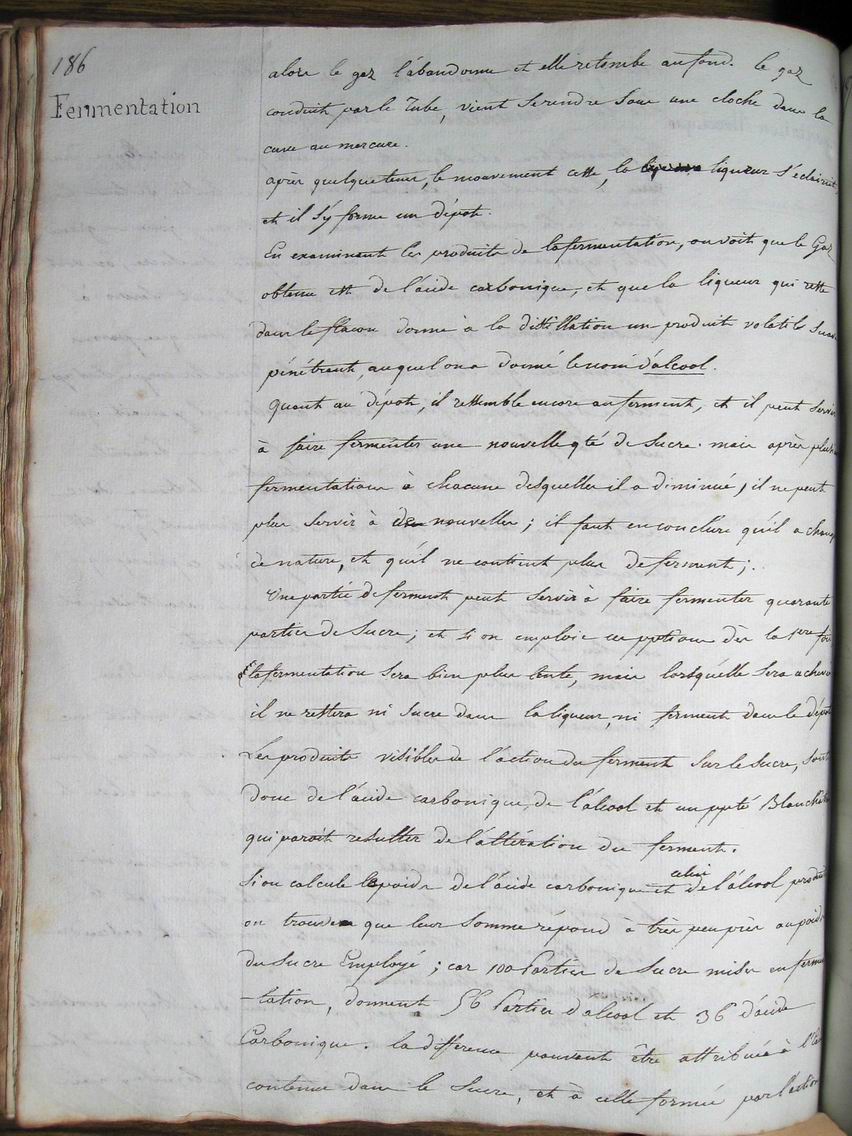 186
Fermentation
alors le gaz l'abandonne et elle retombe au fond. le gaz
conduit par le Tube, vient se rendre sous une cloche dans la
cuve au mercure.
après quelque tems, le mouvement cesse, la liqueur s'éclaircit
et il s'y forme un dépot.
En examinant les produits de la fermentation, on voit que le Gaz
obtenu est de l'acide carbonique, et que la liqueur qui reste
dans le flacon donne à la distillation un produit volatil
pénétrant, auquel on a donné le nom d'alcool.
Quant au dépot, il ressemble encore au ferment, et il peut servir
à faire fermenter une nouvelle qté de sucre. mais après plus
fermentations à chacune desquelles il a diminué, il ne peut
plus servir à de nouvelles; il faut en conclure qu'il a chang
de nature, et qu'il ne contient plus de ferment;.
Une partie de ferment peut servir à faire fermenter quarante
parties de sucre; et si on emploie ces pptions dès la 1ere fois
la fermentation sera bien plus lente, mais lorsqu'elle sera achevé
il ne restera ni sucre dans la liqueur, ni ferment dans le dépot
Les produits visibles de l'action du ferment sur le sucre, sont
donc de l'acide carbonique, de l'alcool et un ppté Blanchâtre
qui parait resulter de l'altération du ferment.
Si on calcule le poids de l'acide carbonique et celui de l'alcool produit
on trouve que leur somme répond à très peu près au poids
du sucre Employé; car 100 Parties de sucre mises en fermen
-tation, donnent 56 Parties d'alcool et 36 d'acide
Carbonique. la difference pouvant être attribuée à l'
contenue dans le sucre, et à celle formée par l'action